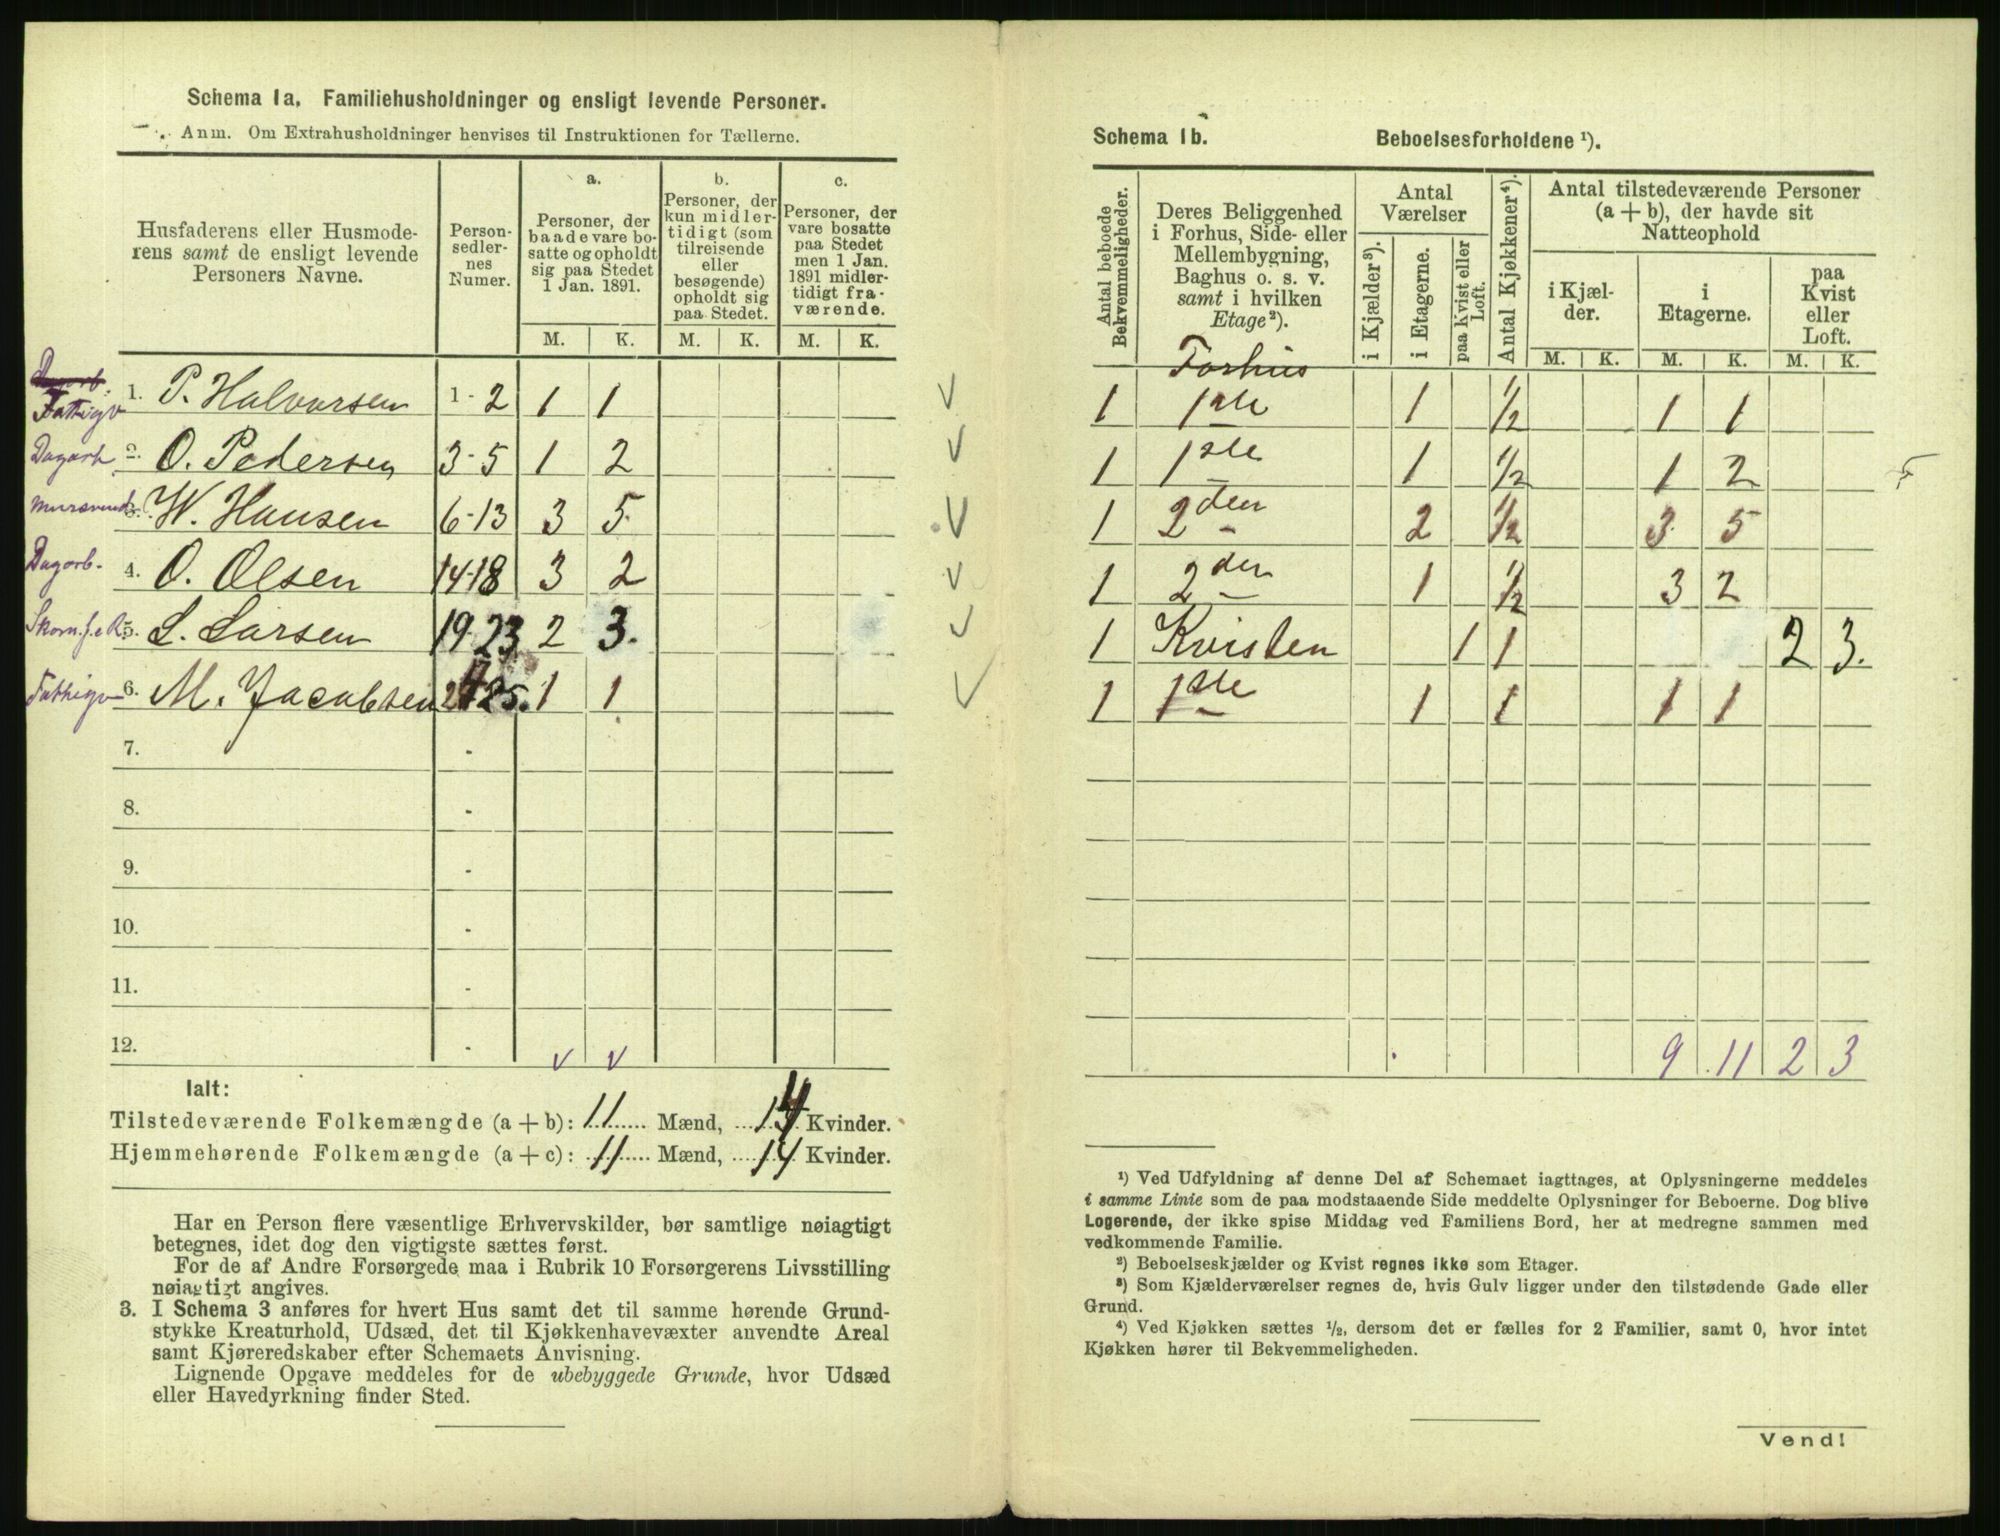 Schema 1a. Familiehusholdninger og ensligt levende Personer.
Anm. Om Extrahusholdninger henvises til Instruktionen for Tællerne.
Husfaderens eller Husmoderens samt de ensligt levende Personers Navne.
Personsedlernes Numer.
a. Personer, der baade vare bosatte og opholdt sig paa Stedet 1 Jan. 1891.
b. Personer, der kun midlertidigt (som tilreisende eller besøgende) opholdt sig paa Stedet.
c. Personer, der vare bosatte paa Stedet men 1 Jan. 1891 midlertidigt fraværende.
M. K. M. K. M. K.
Fattigv 1. P. Halvorsen 1-2 1 1
Dagarb 2. O. Pedersen 3-5 1 2
Mursvend 3. W. Hansen 6-13 3 5
Dagarb. 4. O. Olsen 14-18 3 2
5. L. Larsen 19-23 2 3.
Fattigv 6. M. Jacobsen 24-25. 1 1
7. -
8. -
9. -
10. -
11. -
12. -
Ialt:
Tilstedeværende Folkemængde (a + b): 11 Mænd, 14 Kvinder.
Hjemmehørende Folkemængde (a + c): 11 Mænd, 14 Kvinder.
Har en Person flere væsentlige Erhvervskilder, bør samtlige nøiagtigt
betegnes, idet dog den vigtigste sættes først.
For de af Andre Forsørgede maa i Rubrik 10 Forsørgerens Livsstilling
nøiagtigt angives.
3. I Schema 3 anføres for hvert Hus samt det til samme hørende Grund-
stykke Kreaturhold, Udsæd, det til Kjøkkenhavevæxter anvendte Areal
samt Kjøreredskaber efter Schemaets Anvisning.
Lignende Opgave meddeles for de ubebyggede Grunde, hvor Udsæd
eller Havedyrkning finder Sted.
Schema 1b. Beboelsesforholdene ¹).
Antal beboede Bekvemmeligheder.
Deres Beliggenhed i Forhus, Side- eller Mellembygning, Baghus o. s. v. samt i hvilken Etage²).
Antal Værelser
i Kjælder³).
i Etagerne.
paa Kvist eller Loft.
Antal Kjøkkener⁴).
Antal tilstedeværende Personer (a + b), der havde sit Natteophold
i Kjælder.
i Etagerne.
paa Kvist eller Loft.
M. K. M. K. M. K.
Forhus
1 1ste 1 ½ 1 1
1 1ste 1 ½ 1 2
1 2den 2 ½ 3 5
1 2den 1 ½ 3 2
1 Kvisten 1 1 2 3.
1 1ste 1 1 1 1
9 11 2 3
¹) Ved Udfyldning af denne Del af Schemaet iagttages, at Oplysningerne meddeles
i samme Linie som de paa modstaaende Side meddelte Oplysninger for Beboerne. Dog blive
Logerende, der ikke spise Middag ved Familiens Bord, her at medregne sammen med
vedkommende Familie.
²) Beboelseskjælder og Kvist regnes ikke som Etager.
³) Som Kjælderværelser regnes de, hvis Gulv ligger under den tilstødende Gade eller
Grund.
⁴) Ved Kjøkken sættes ½, dersom det er fælles for 2 Familier, samt 0, hvor intet
Kjøkken hører til Bekvemmeligheden.
Vend!